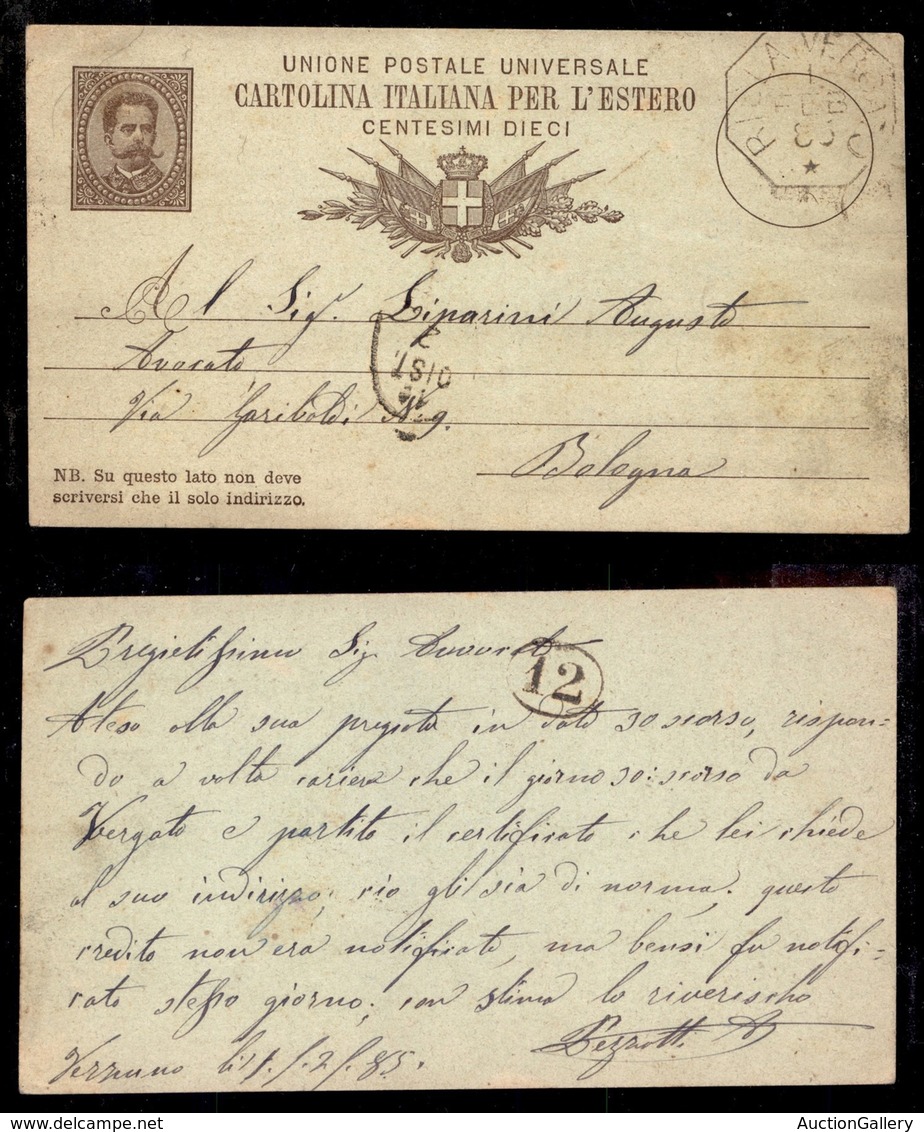 UNIONE POSTALE UNIVERSALE
CARTOLINA ITALIANA PER L'ESTERO
CENTESIMI DIECI
RIOLA VERGATO
Al Sig. Liparini Augusto
Avocato
Via Garibaldi N. 9.
Bologna
NB. Su questo lato non deve
scriversi che il solo indirizzo.
Pregietissimo Sig. Avvocato
12
Ateso alla sua pregiata in data 30 scorso, rispon=
do a volta cariera che il giorno 30: scorso da
Vergato e partito il certificato che lei chiede
al suo indirizzo; cio gli sia di norma; questo
credito non era notificato, ma bensi fu notifi=
cato stesso giorno; con stima lo riverischo
Verzuno li 1. / 2 / 85.
AuctionGallery